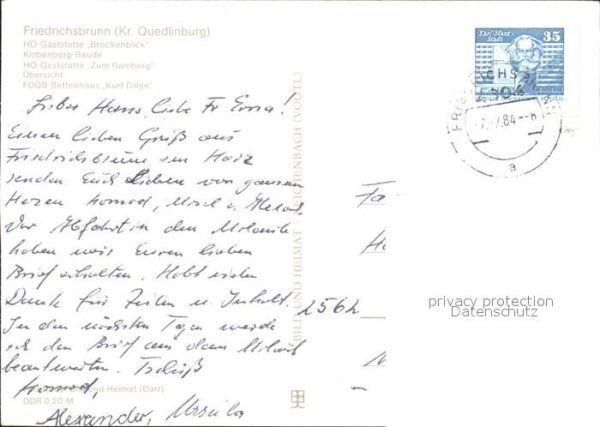 Friedrichsbrunn (Kr. Quedlinburg)
HO-Gaststätte „Brockenblick"
Klobenberg-Baude
HO-Gaststätte „Zum Ramberg"
Übersicht
FDGB-Bettenhaus „Kurt Dillge"
Lieber Hans, liebe Fr Erna!
Einen lieben Gruß aus
Friedrichsbrunn im Harz
senden Euch Lieben von ganzem
Herzen Konrad,
Vor Abfahrt in den
haben wir Euren lieben
Brief erhalten. Habt vielen
Dank für Zeilen u. Inhalt.
In den nächsten Tagen werde
ich den Brief aus dem
beantworten. Tschüß
Konrad,
Alexander, Ursula
und Heimat (Darr)
DDR 0,20 M
BILD UND HEIMAT REICHENBACH (VOGTL)
Karl-Marx-
Stadt
35
84
a
2562
privacy protection
Datenschutz